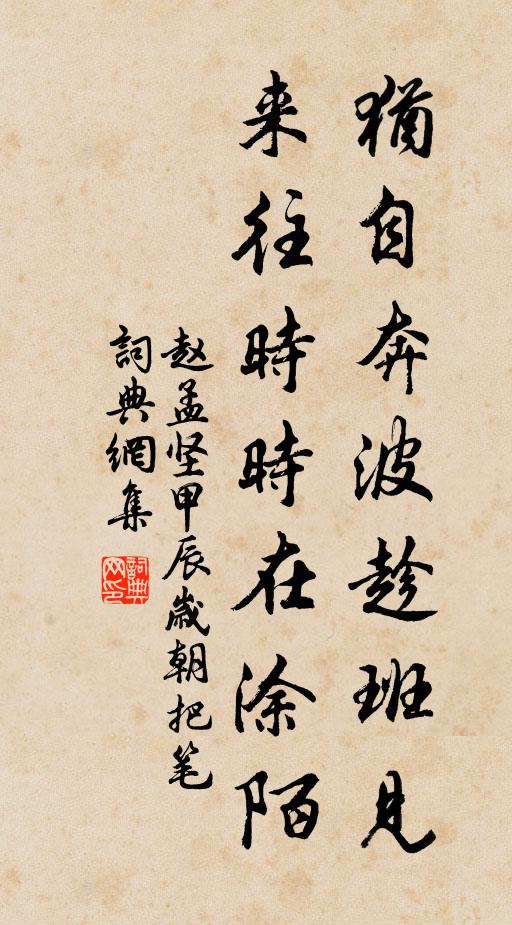 猶自奔波趁班見
来往時時在涂陌
赵孟坚甲辰歲朝把笔
詞典網集
詞典网印